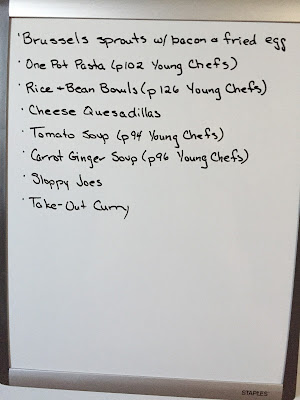 · Brussels sprouts w/ bacon & fried egg
· One Pot Pasta (p102 Young Chefs)
· Rice + Bean Bowls (p 126 Young Chefs)
· Cheese Quesadillas
· Tomato Soup (p94 Young Chefs)
· Carrot Ginger Soup (p96 Young Chefs)
· Sloppy Joes
· Take-Out Curry
STAPLES